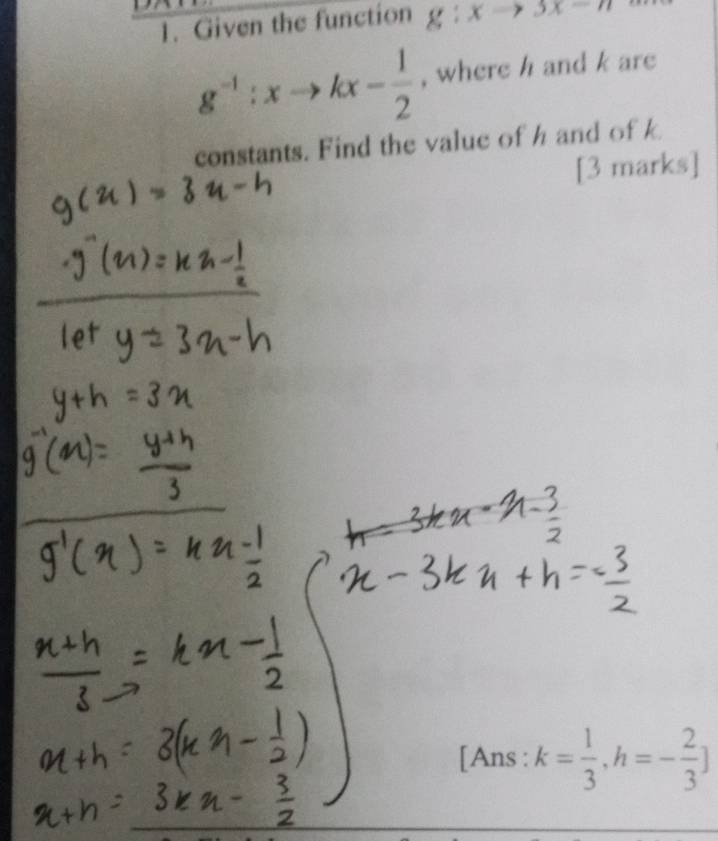 1. Given the function g : x → 3x − h
g⁻¹ : x → kx − 1/2 , where h and k are
constants. Find the value of h and of k.
[3 marks]
g(x) = 3x-h
g⁻¹(x) = kx - 1/2
let y = 3x-h
y+h = 3x
g⁻¹(x) = (y+h)/3
g¹(x) = kx - 1/2
(x+h)/3 = kx - 1/2
x+h = 3(kx - 1/2)
x+h = 3kx - 3/2
h = 3kx - x - 3/2
x - 3kx + h = -3/2
[Ans : k = 1/3 , h = − 2/3]